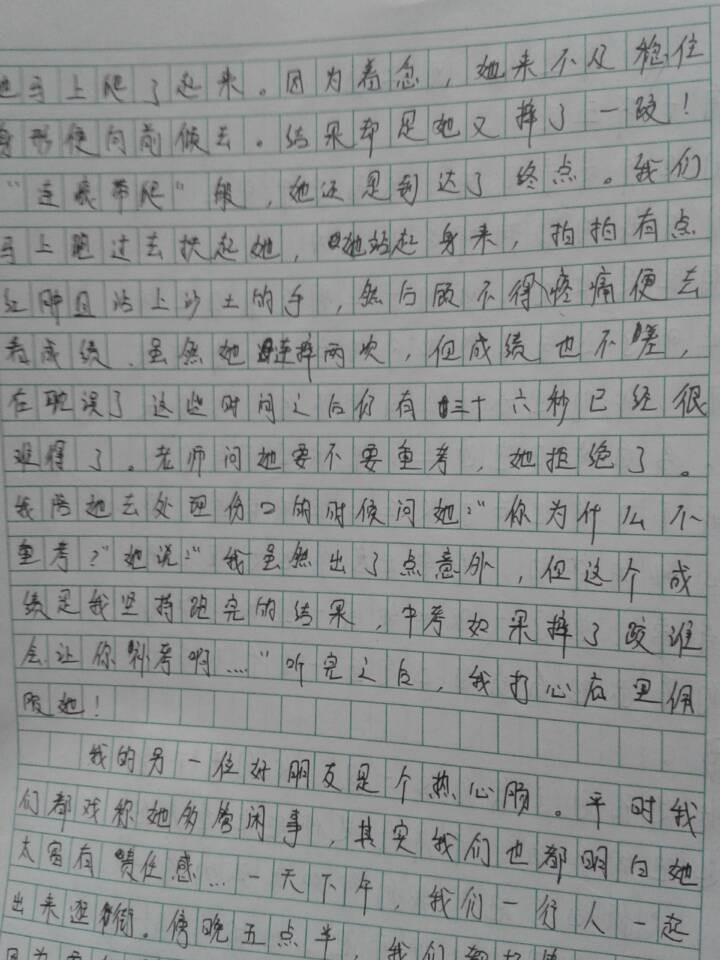 她马上爬了起来。因为着急，她来不及稳住
身形便向前倾去。结果却是她又摔了一跤！
“连滚带爬”般，她还是到达了终点。我们
马上跑过去扶起她，她站起身来，拍拍有点
红肿且沾上沙土的手，然后顾不得疼痛便去
看成绩。虽然她连摔两次，但成绩也不差，
在耽误了这些时间之后仍有三十六秒已经很
难得了。老师问她要不要重考，她拒绝了。
我陪她去处理伤口的时候问她：“你为什么不
重考？”她说：“我虽然出了点意外，但这个成
绩是我坚持跑完的结果，中考如果摔了跤谁
会让你补考啊……”听完之后，我打心底里佩
服她！
我的另一位好朋友是个热心肠。平时我
们都戏称她多管闲事，其实我们也都明白她
太富有责任感……一天下午，我们一行人一起
出来逛街。傍晚五点半，我们都
因为